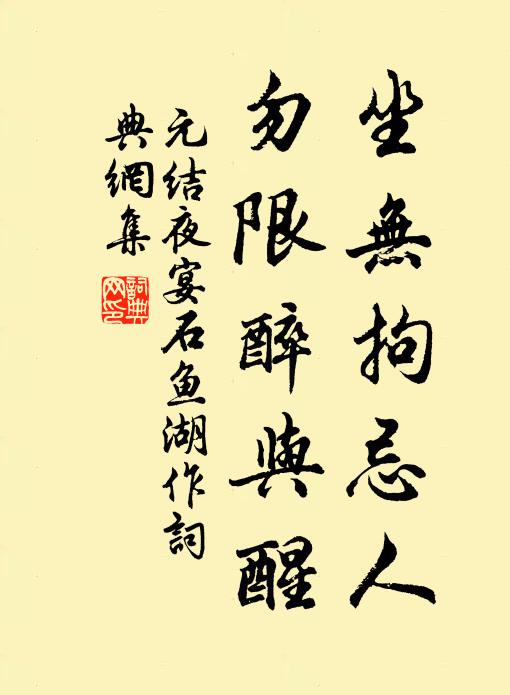 坐無拘忌人
勿限醉與醒
元结夜宴石鱼湖作詞
典網集
詞典
网印